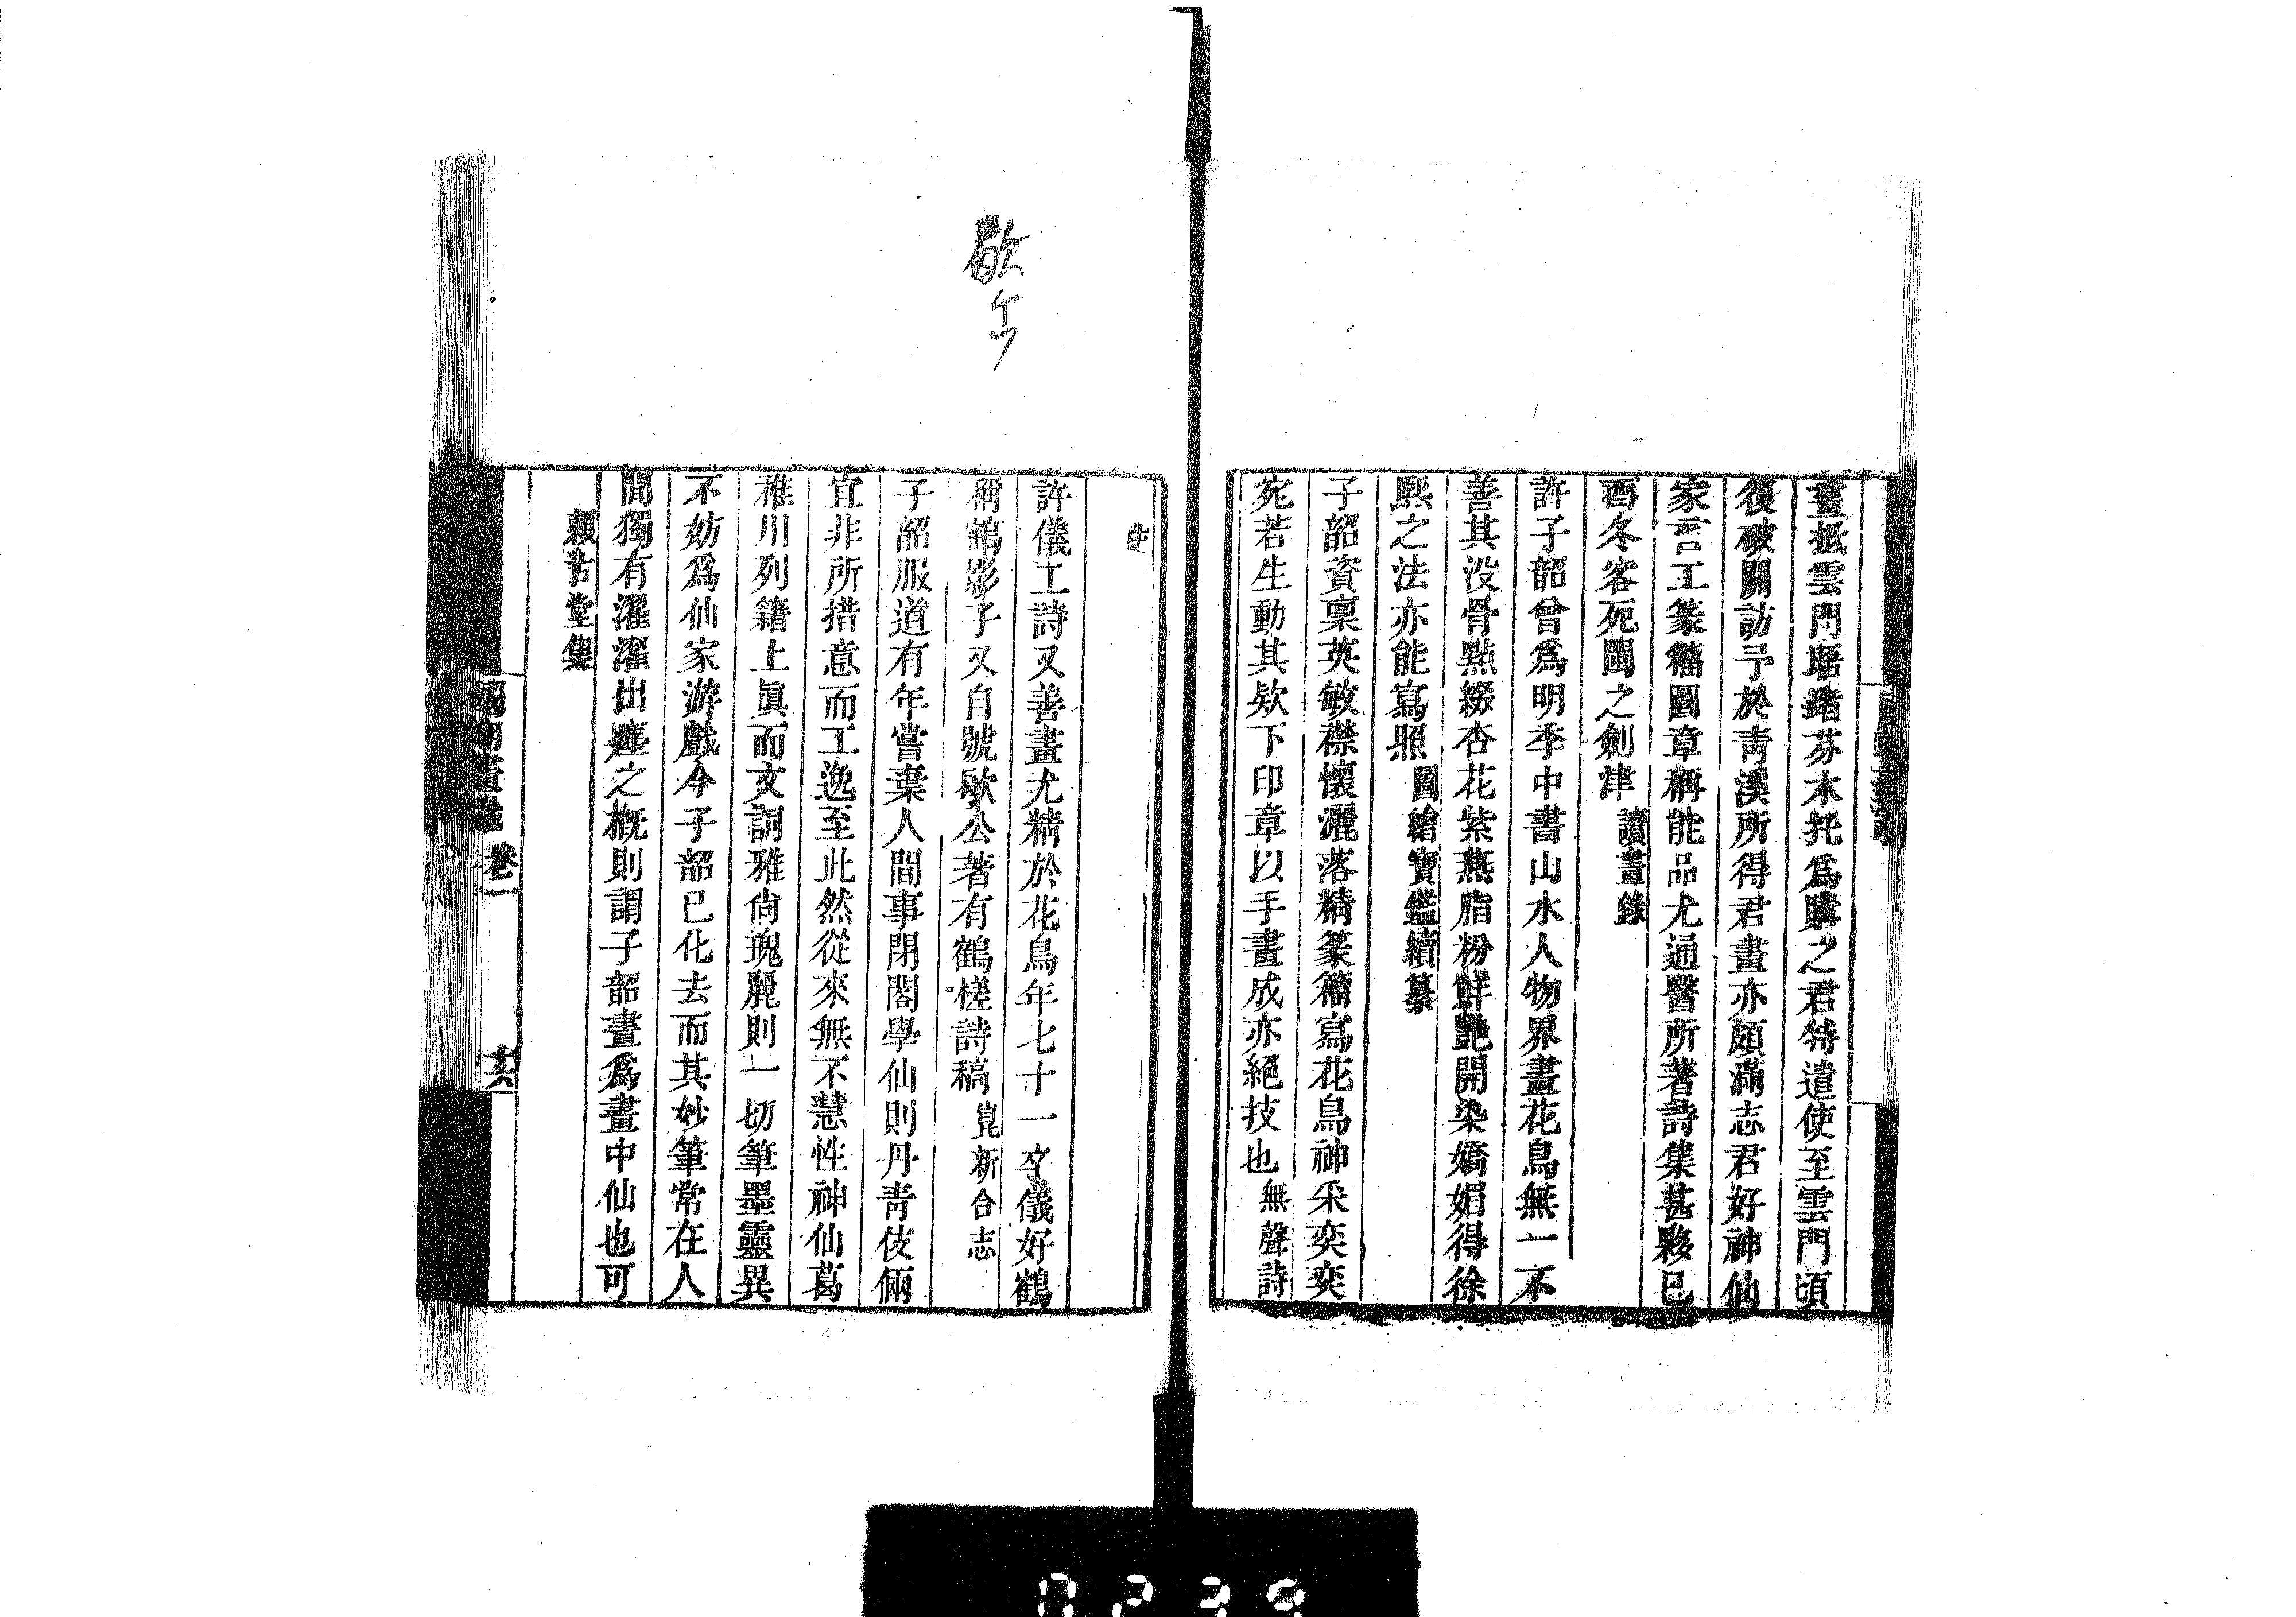 畫抵雲門晤諸芬木托爲購之君特遣使至雲門頃
復破關訪予於靑溪所得君畫亦頗滿志君好神仙
家言工篆籕圖章稱能品尤通醫所著詩集甚夥已
酉冬客死閩之劍津 讀畫錄
許子韶曾爲明季中書山水人物界畫花鳥無一不
善其没骨點綴杏花紫燕脂粉鮮艷開染嬌媚得徐
熙之法亦能寫照 圖繪寶鑑續纂
子韶資稟英敏襟懷灑落精篆籕寫花鳥神采奕奕
宛若生動其欵下印章以手畫成亦絕技也 無聲詩
史
許儀工詩又善畫尤精於花鳥年七十一卒儀好鶴
稱鶴影子又自號歇公著有鶴槎詩稿 崑新合志
子韶服道有年嘗棄人間事閉閣學仙則丹靑伎倆
宜非所措意而工逸至此然從來無不慧性神仙葛
稚川列籍上眞而文詞雅尙瑰麗則一切筆墨靈異
不妨爲仙家游戲今子韶已化去而其妙筆常在人
間獨有濯濯出塵之槪則謂子韶畫爲畫中仙也可
賴古堂集
國朝畫識 卷一 十六
0239